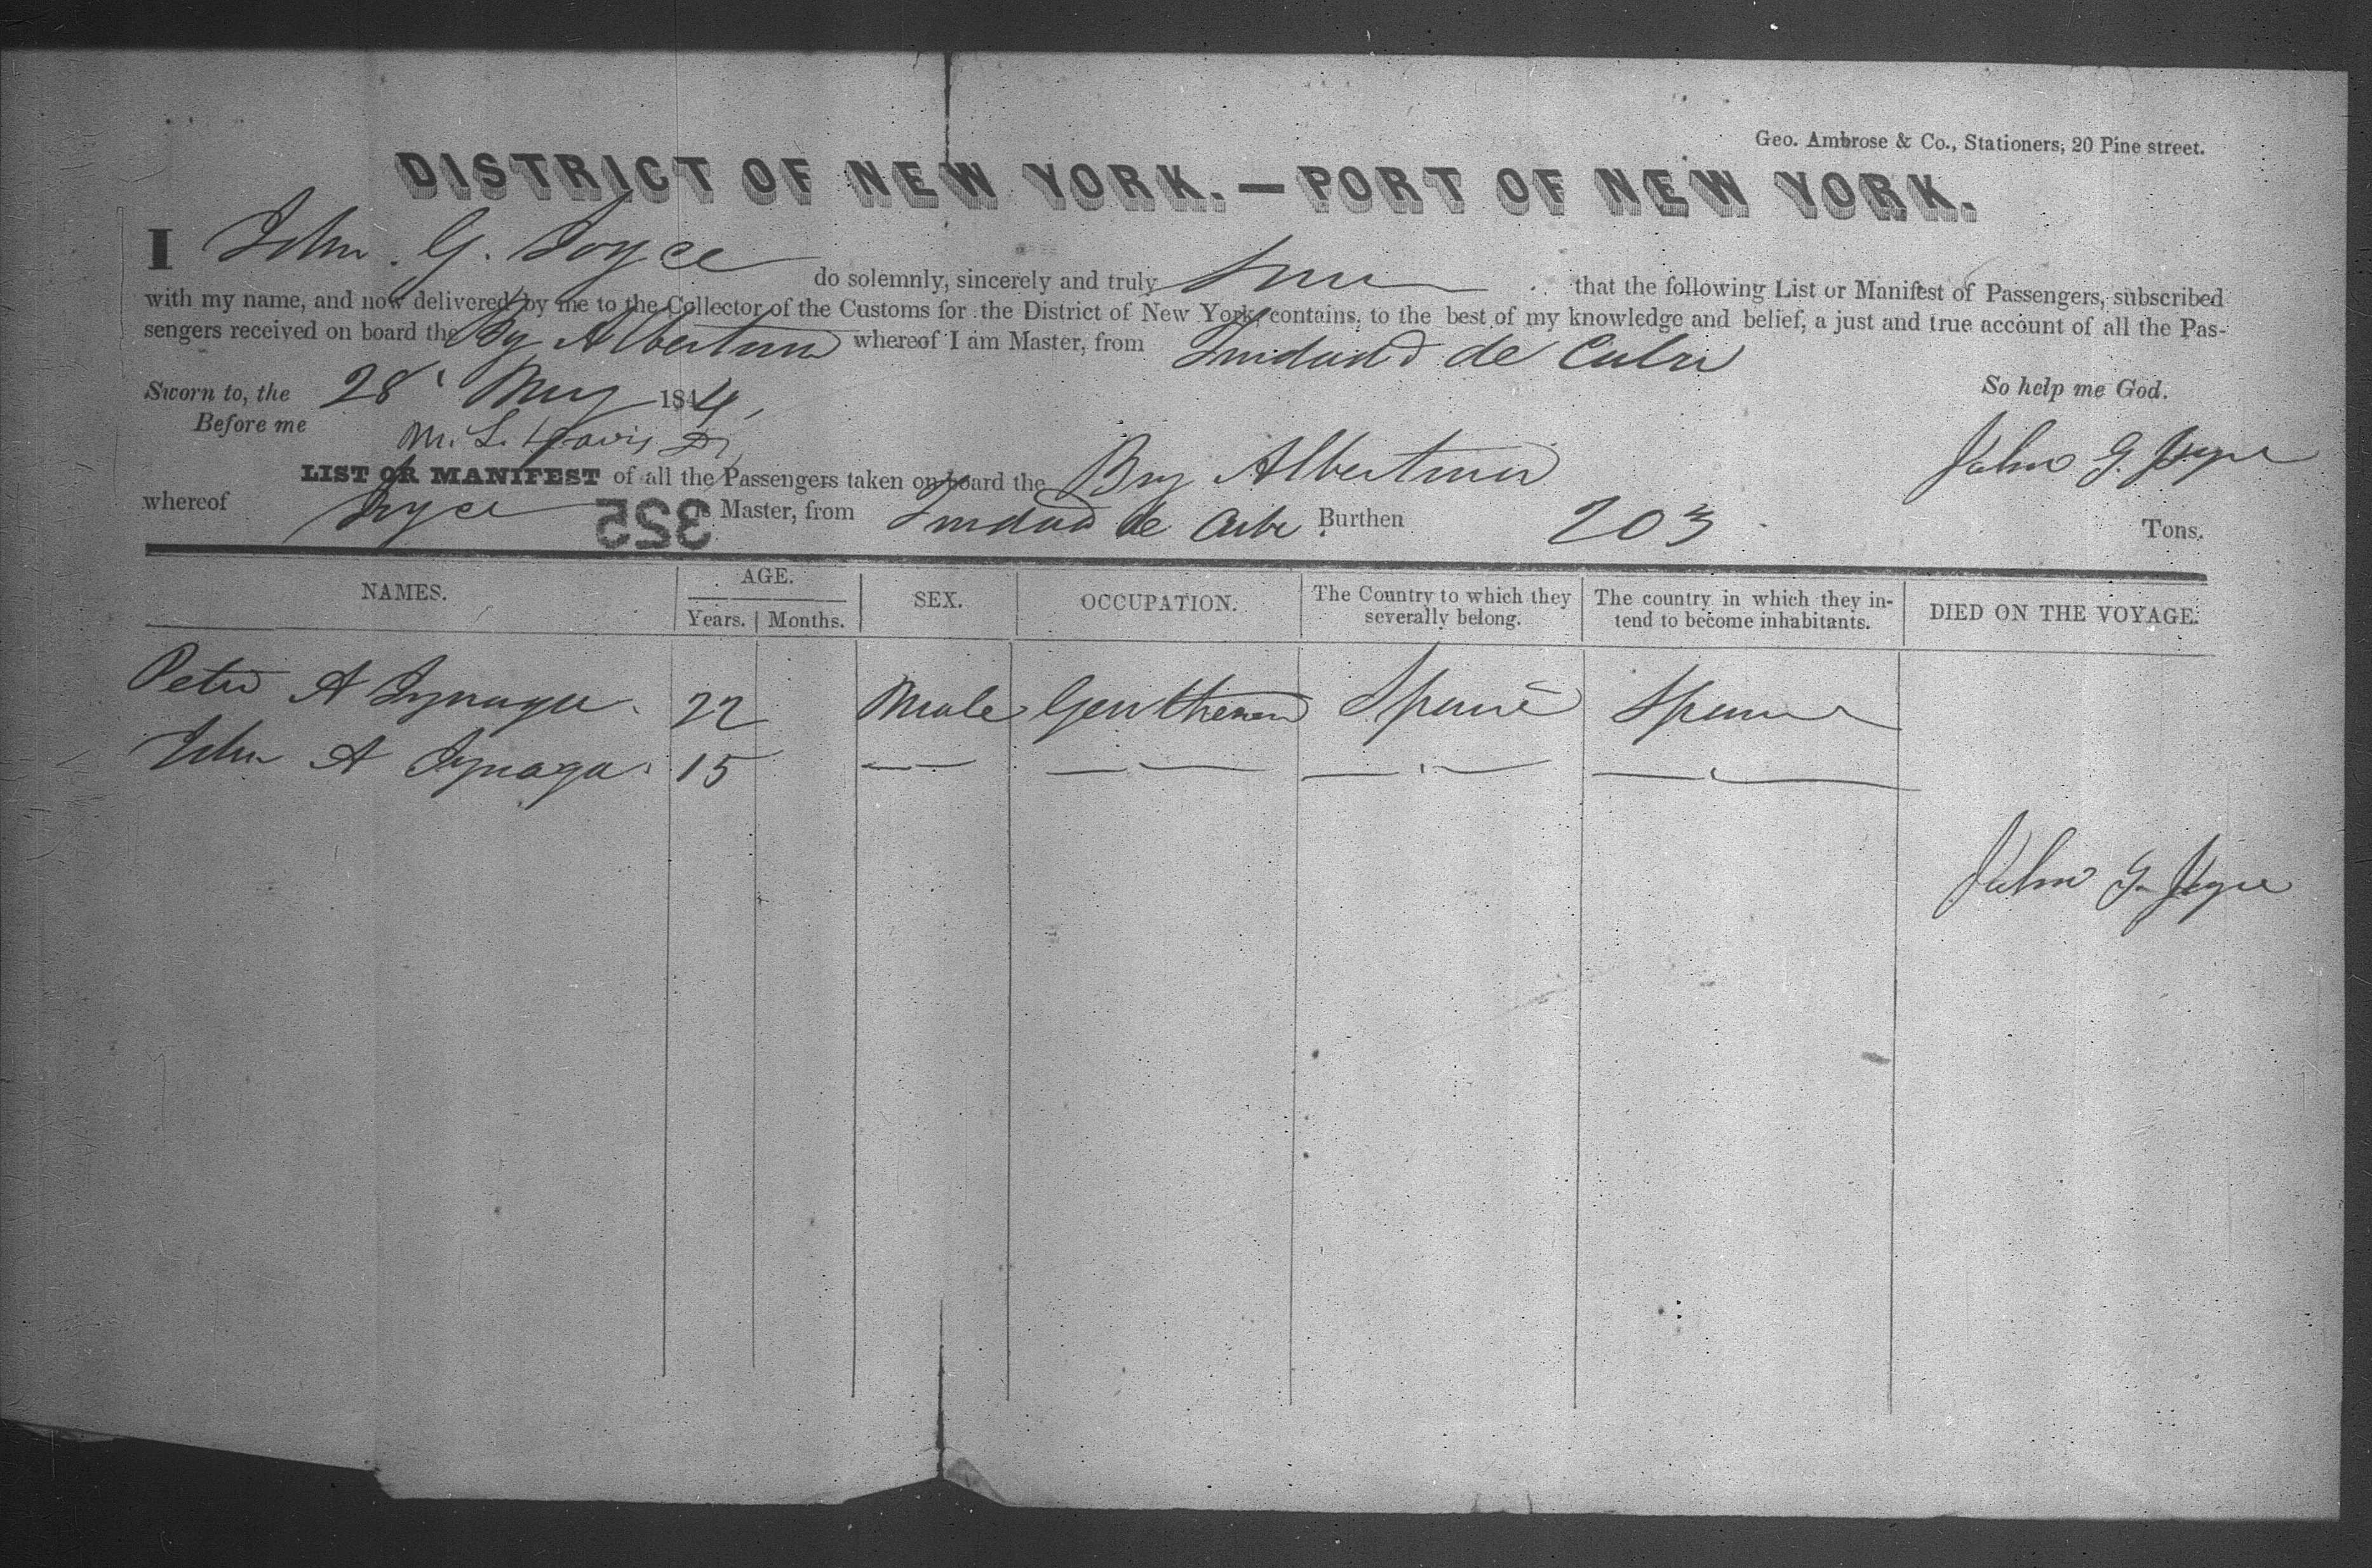 Geo. Ambrose & Co., Stationers, 20 Pine street.
DISTRICT OF NEW YORK.—PORT OF NEW YORK.
I John. G. Joyce do solemnly, sincerely and truly that the following List or Manifest of Passengers, subscribed
with my name, and now delivered by me to the Collector of the Customs for the District of New York, contains, to the best of my knowledge and belief, a just and true account of all the Pas-
sengers received on board the whereof I am Master, from Trinidad de Cuba
Sworn to, the 28' May 1844, So help me God.
Before me M. L. Davis John G. Joyce
LIST OR MANIFEST of all the Passengers taken on board the Brig
whereof Joyce is Master, from Trinidad de Cuba Burthen 203 Tons.
325
NAMES. AGE. SEX. OCCUPATION. The Country to which they severally belong. The country in which they in-tend to become inhabitants. DIED ON THE VOYAGE.
Years. Months.
Peter A Iznaga 22 Male Gentleman Spain Spain
John A Iznaga 15 — — — —
John G. Joyce